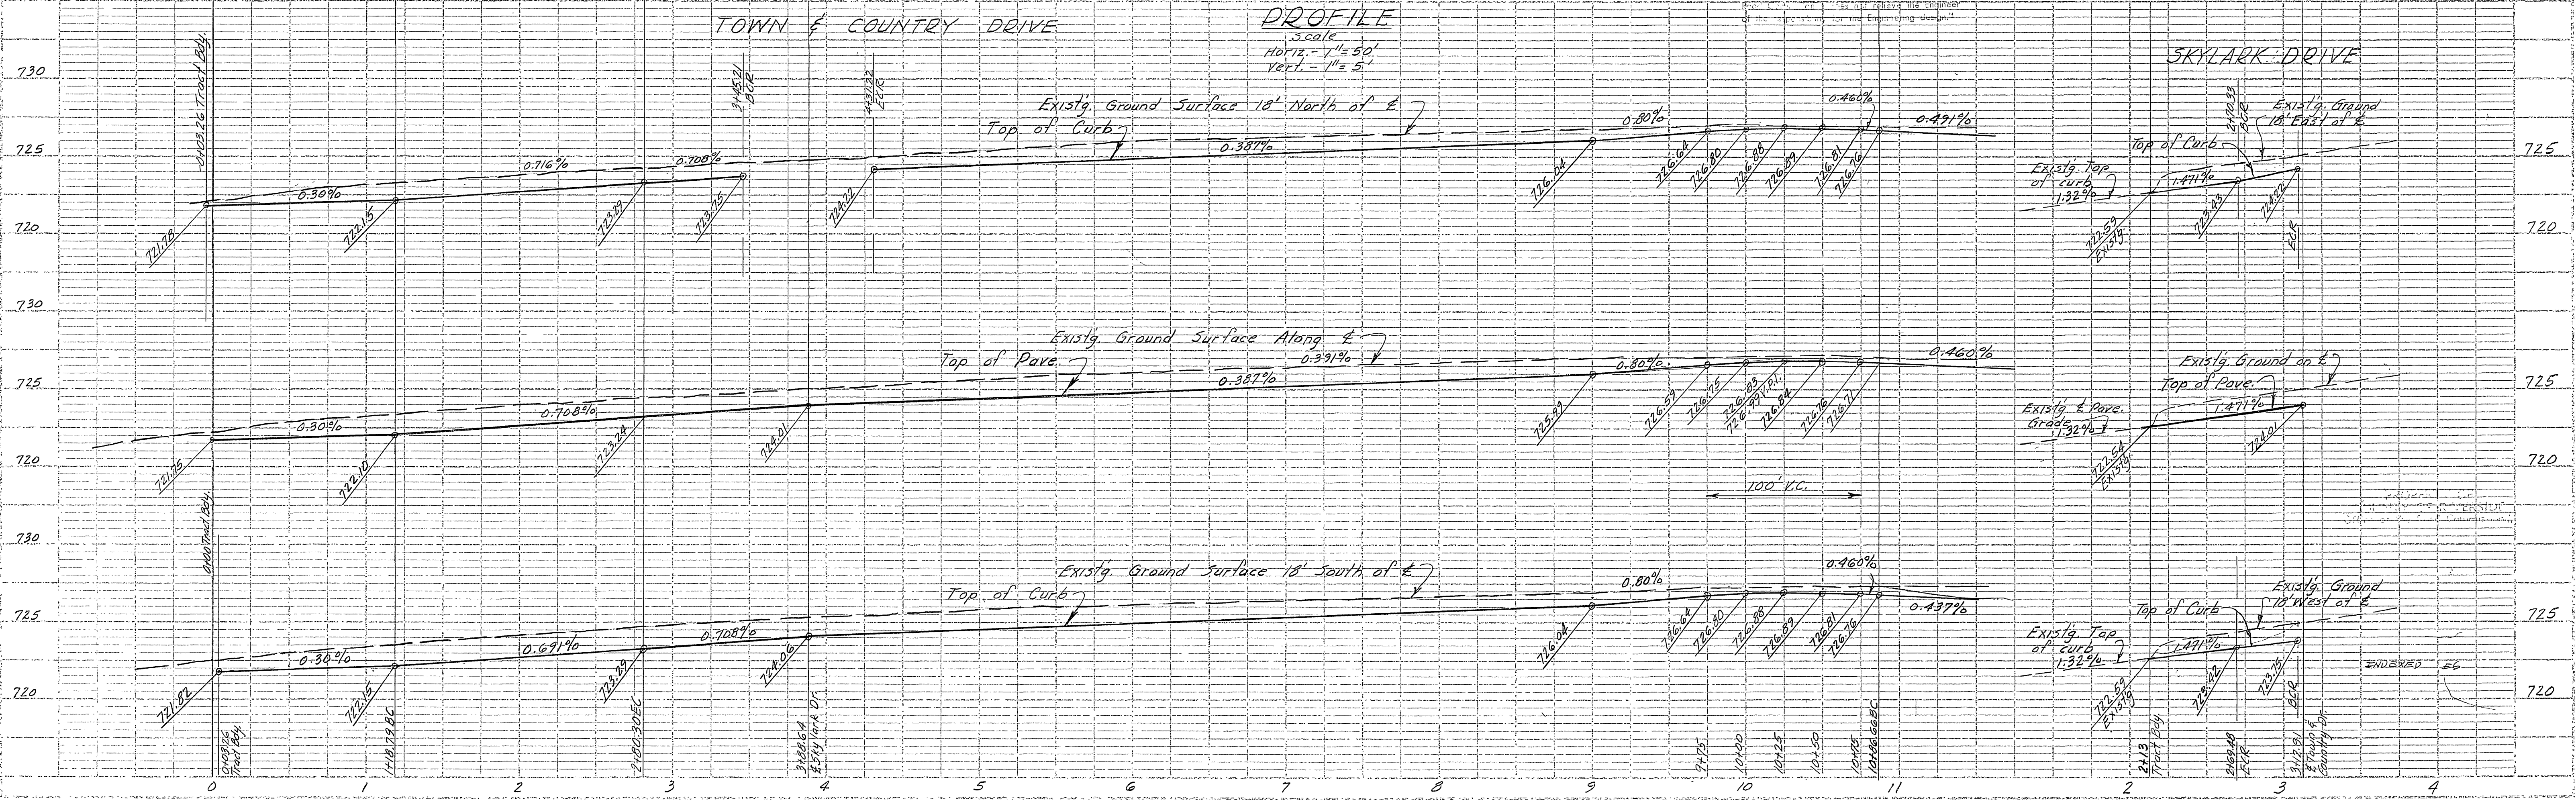 TOWN & COUNTRY DRIVE
PROFILE
Scale
Horiz. - 1" = 50'
Vert. - 1" = 5'
not relieve the Engineer
for the Engineering design."
SKYLARK DRIVE
730
725
720
-0+03.26 Tract Bdy.
3+45.21
BCR
4+31.22
ECR
Exist'g. Ground Surface 18' North of ℄
Top of Curb
0.30%
0.716%
0.708%
0.387%
0.80%
0.460%
0.491%
721.78
722.15
723.29
723.75
724.22
726.04
726.64
726.80
726.88
726.89
726.81
726.76
2+70.33
BCR
Exist'g. Ground
18' East of ℄
Top of Curb
Exist'g. Top
of curb
1.32%
1.471%
722.59
Exist'g.
723.43
724.22
ECR
725
720
730
725
720
Exist'g. Ground Surface Along ℄
Top of Pave.
0.30%
0.708%
0.391%
0.387%
0.80%
0.460%
721.75
722.10
723.24
724.01
725.99
726.59
726.75
726.83
726.99 V.P.I.
726.84
726.76
726.71
100' V.C.
Exist'g. Ground on ℄
Top of Pave.
Exist'g. ℄ Pave.
Grade
1.32%
1.471%
722.54
Exist'g.
724.01
725
720
0+00 Tract Bdy.
730
725
720
Exist'g. Ground Surface 18' South of ℄
Top of Curb
0.30%
0.691%
0.708%
0.80%
0.460%
0.437%
721.82
722.15
723.29
724.06
726.04
726.64
726.80
726.88
726.89
726.81
726.76
Exist'g. Ground
18' West of ℄
Top of Curb
Exist'g. Top
of curb
1.32%
1.471%
722.59
Exist'g.
723.42
723.75
BCR
INDEXED
725
720
0+03.26
Tract Bdy.
1+18.79 BC
2+80.30 EC
3+88.64
℄ Skylark Dr.
9+75
10+00
10+25
10+50
10+75
10+86.66 BC
2+13
Tract Bdy
2+69.48
ECR
3+12.91
℄ Town &
Country Dr.
0 1 2 3 4 5 6 7 8 9 10 11 2 3 4